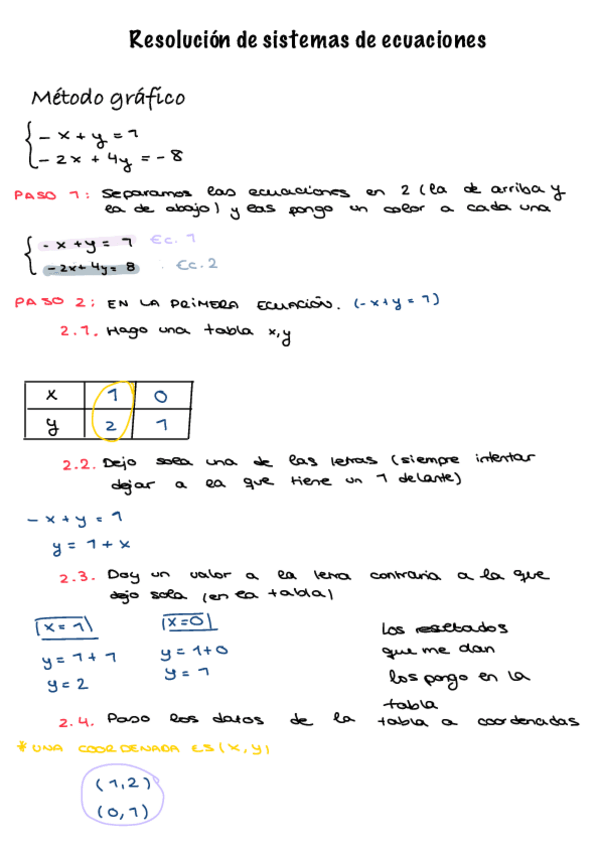 Resolución de sistemas de ecuaciones
Método gráfico
- x + y = 1
- 2x + 4y = - 8
PASO 1: Separamos las ecuaciones en 2 (la de arriba y
la de abajo) y las pongo un color a cada una
- x + y = 1 Ec. 1
- 2x + 4y = 8 Ec. 2
PASO 2: EN LA PRIMERA ECUACIÓN. (-x+y = 1)
2.1. Hago una tabla x,y
x 1 0
y 2 1
2.2. Dejo sola una de las letras (siempre intentar
dejar a la que tiene un 1 delante)
- x + y = 1
y = 1 + x
2.3. Doy un valor a la letra contraria a la que
dejo sola (en la tabla)
x = 1 x = 0
y = 1 + 1 y = 1+0
y = 2 y = 1
Los resultados
que me dan
los pongo en la
tabla
2.4. Paso los datos de la tabla a coordenadas
* UNA COORDENADA ES (X, Y)
(1,2)
(0,1)